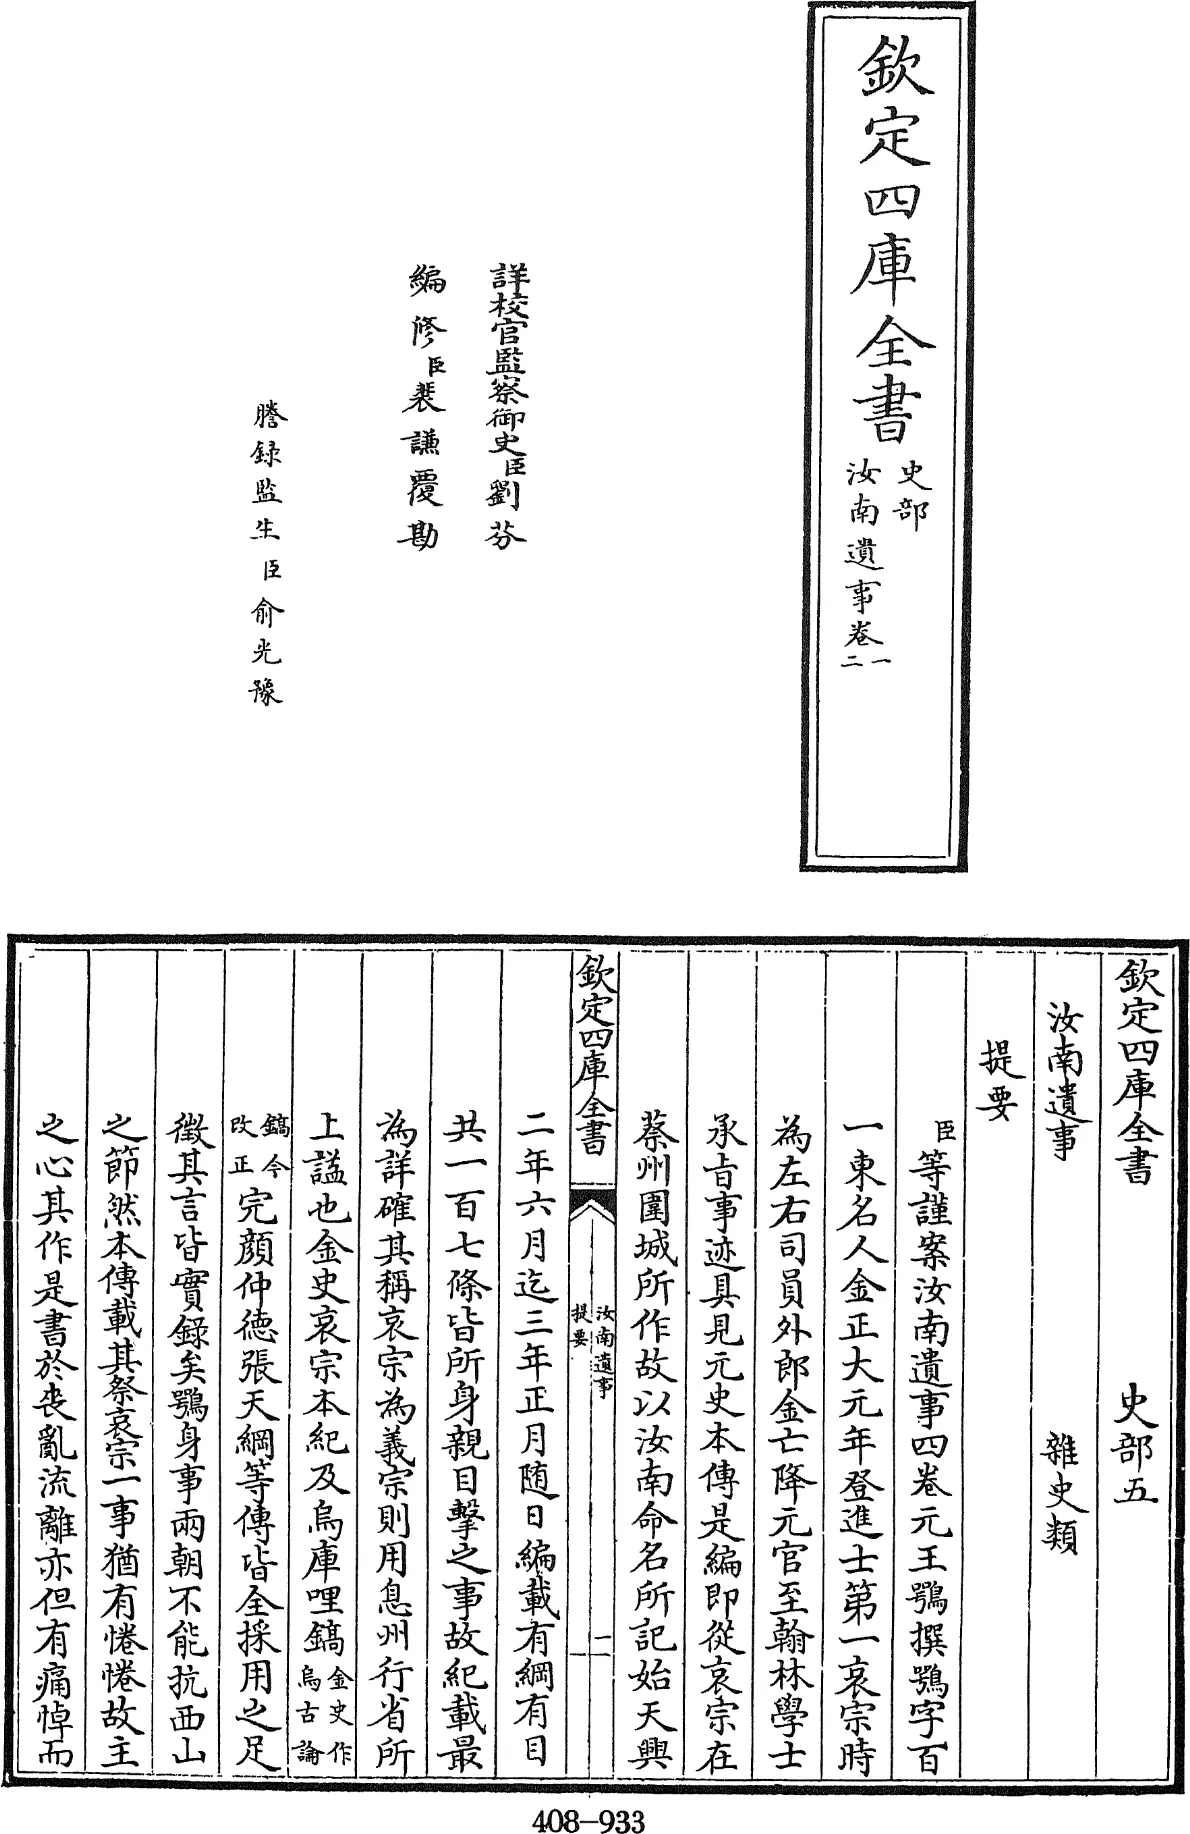 欽定四庫全書
史部
汝南遺事卷一二
詳校官監察御史臣劉芬
編修臣裴謙覆勘
謄録監生臣俞光豫
欽定四庫全書 史部五
汝南遺事 雜史類
提要
臣等謹案汝南遺事四卷元王鶚撰鶚字百
一東名人金正大元年登進士第一哀宗時
為左右司員外郎金亡降元官至翰林學士
承旨事迹具見元史本傳是編即從哀宗在
蔡州圍城所作故以汝南命名所記始天興
欽定四庫全書
汝南遺事
提要
二
二年六月迄三年正月随日編載有綱有目
共一百七條皆所身親目擊之事故紀載最
為詳確其稱哀宗為義宗則用息州行省所
上諡也金史哀宗本紀及烏庫哩鎬金史作烏古論
鎬今改正完顔仲德張天綱等傳皆全採用之足
徵其言皆實録矣鶚身事兩朝不能抗西山
之節然本傳載其祭哀宗一事猶有惓惓故主
之心其作是書於丧亂流離亦但有痛悼而
408-933